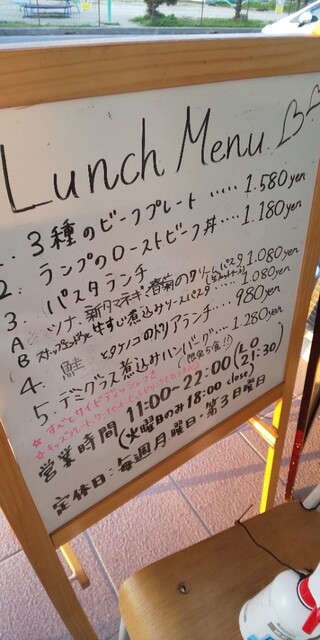 Lunch Menu ♡♡
1. 3種のビーフプレート ····· 1.580yen
2. ランプのローストビーフ丼···· 1.180yen
3 パスタランチ
A ツナ、新タマネギ、春菊の パスタ 1.080yen
B 牛すじ煮込みソースパスタ 1.080yen
4. 鮭とタケノコのドリアランチ··· 980yen
5. デミグラス煮込みハンバーグ··· 1.280yen
(限定5食!!)
☆すべてサイドディッシュつき
☆キッズプレート
営業時間 11:00~22:00 (LO 21:30)
(火曜日のみ 18:00 close)
定休日:毎週月曜日・第3日曜日